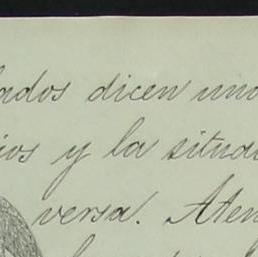 ados dicen una
ios y la situa
versa. Aten